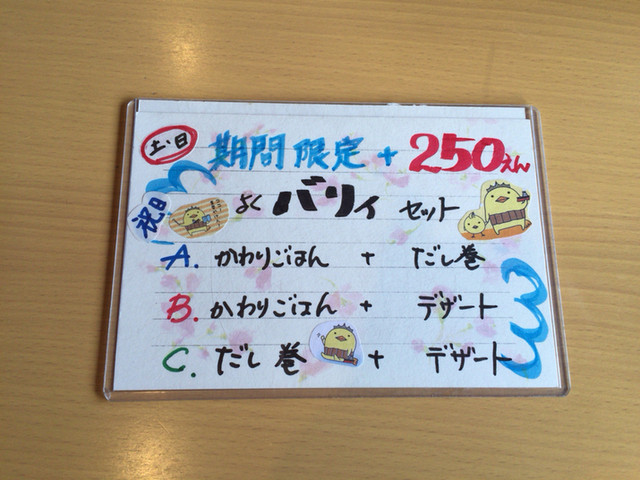 土・日 期間限定 + 250えん
祝日 よくバリィセット
A. かわりごはん + だし巻
B. かわりごはん + デザート
C. だし巻 + デザート